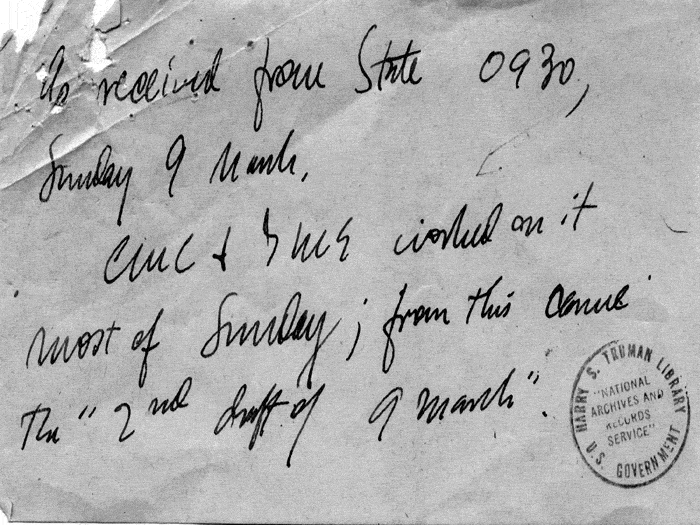 As received from State 0930,
Sunday 9 March.
CMC & GME worked on it
most of Sunday; from this came
the "2nd draft of 9 March".
HARRY S. TRUMAN LIBRARY
"NATIONAL
ARCHIVES AND
RECORDS
SERVICE"
U.S. GOVERNMENT